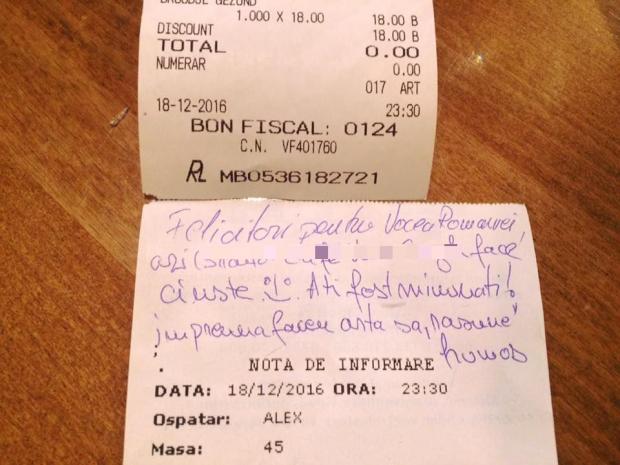 BROODJE GEZOND
1.000 X 18.00 18.00 B
DISCOUNT 18.00 B
TOTAL 0.00
NUMERAR 0.00
017 ART
18-12-2016 23:30
BON FISCAL: 0124
C.N. VF401760
RL MB0536182721
Felicitări pentru Vocea Romaniei,
face
cinste Ati fost minunati!
impreuna facem arta sa „rasune"
frumos
NOTA DE INFORMARE
DATA: 18/12/2016 ORA: 23:30
Ospatar: ALEX
Masa: 45